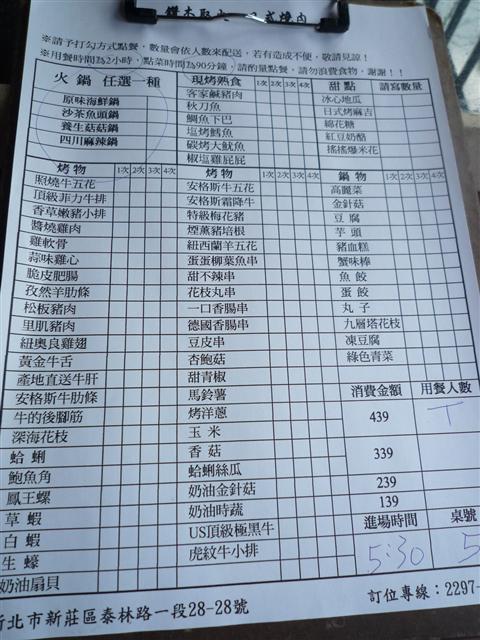 ※請予打勾方式點餐，數量會依人數來配送，若有造成不便，敬請見諒！
※用餐時間為2小時，點菜時間為90分鐘，請酌量點餐，請勿浪費食物，謝謝！！
火鍋 任選一種
原味海鮮鍋
沙茶魚頭鍋
養生菇菇鍋
四川麻辣鍋
現烤熟食 1次 2次 3次 4次
客家鹹豬肉
秋刀魚
鯛魚下巴
塩烤鱈魚
碳烤大魷魚
椒塩雞屁屁
甜點 請寫數量
冰心地瓜
日式烤麻吉
綿花糖
紅豆奶酪
搖搖爆米花
烤物 1次 2次 3次 4次
照燒牛五花
頂級菲力牛排
香草嫩豬小排
醬燒雞肉
雞軟骨
蒜味雞心
脆皮肥腸
孜然羊肋條
松板豬肉
里肌豬肉
紐奧良雞翅
黃金牛舌
產地直送牛肝
安格斯牛肋條
牛的後腳筋
深海花枝
蛤蜊
鮑魚角
鳳王螺
草蝦
白蝦
生蠔
奶油扇貝
烤物 1次 2次 3次 4次
安格斯牛五花
安格斯霜降牛
特級梅花豬
煙薰豬培根
紐西蘭羊五花
蛋蛋柳葉魚串
甜不辣串
花枝丸串
一口香腸串
德國香腸串
豆皮串
杏鮑菇
甜青椒
馬鈴薯
烤洋蔥
玉米
香菇
蛤蜊絲瓜
奶油金針菇
奶油時蔬
US頂級極黑牛
虎紋牛小排
鍋物 1次 2次 3次 4次
高麗菜
金針菇
豆腐
芋頭
豬血糕
蟹味棒
魚餃
蛋餃
丸子
九層塔花枝
凍豆腐
綠色青菜
消費金額 用餐人數
439
339
239
139
進場時間 桌號
5:30 5
新北市新莊區泰林路一段28-28號
訂位專線：2297-